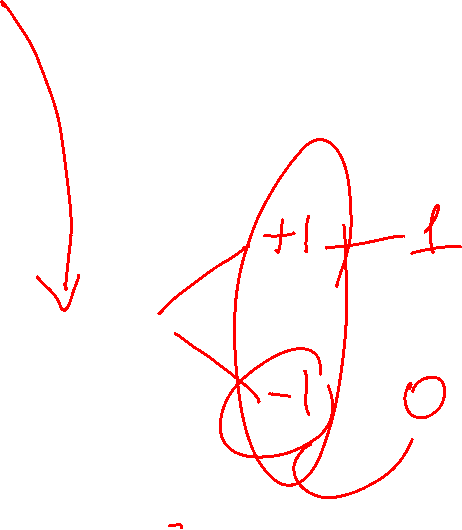 +1 1
-1 0